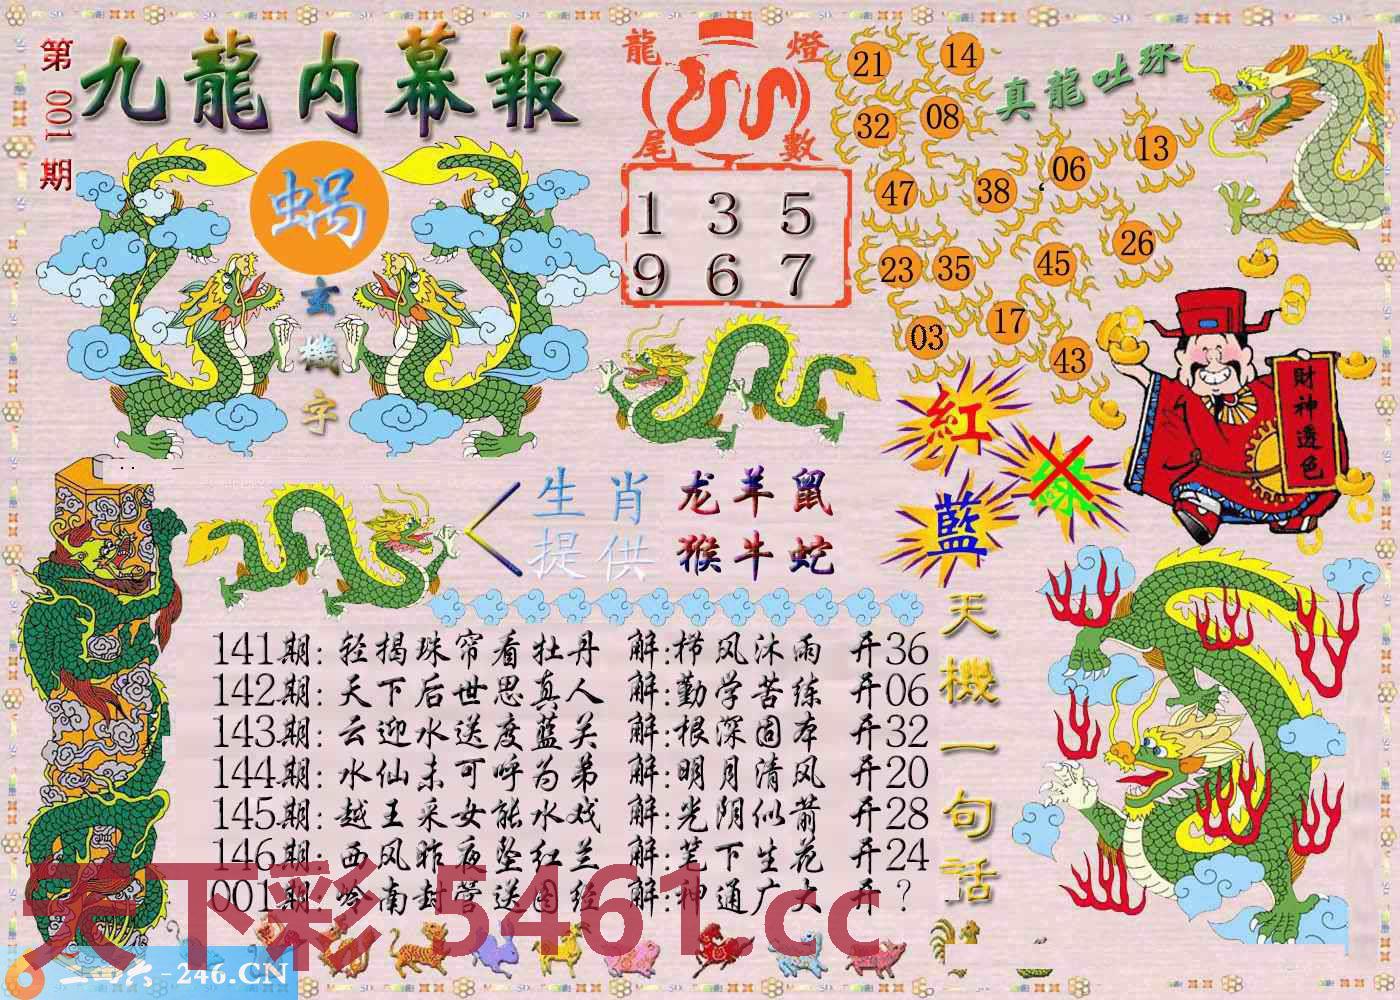 第001期
九龍内幕報
龍燈
尾數
1 3 5
9 6 7
蝸
玄機字
真龍吐珠
21 14
32 08
47 38 06 13
23 35 45 26
03 17 43
財神透色
紅
綠
藍
生肖提供
龙羊鼠
猴牛蛇
天機一句話
141期: 轻揭珠帘看牡丹 解:栉风沐雨 开36
142期: 天下后世思真人 解:勤学苦练 开06
143期: 云迎水送度蓝关 解:根深固本 开32
144期: 水仙未可呼为弟 解:明月清风 开20
145期: 越王采女能水戏 解:光阴似箭 开28
146期: 西风昨夜坠红兰 解:笔下生花 开24
001期: 岭南封营送图经 解:神通广大 开?
天下彩 5461.cc
二四六-246.CN